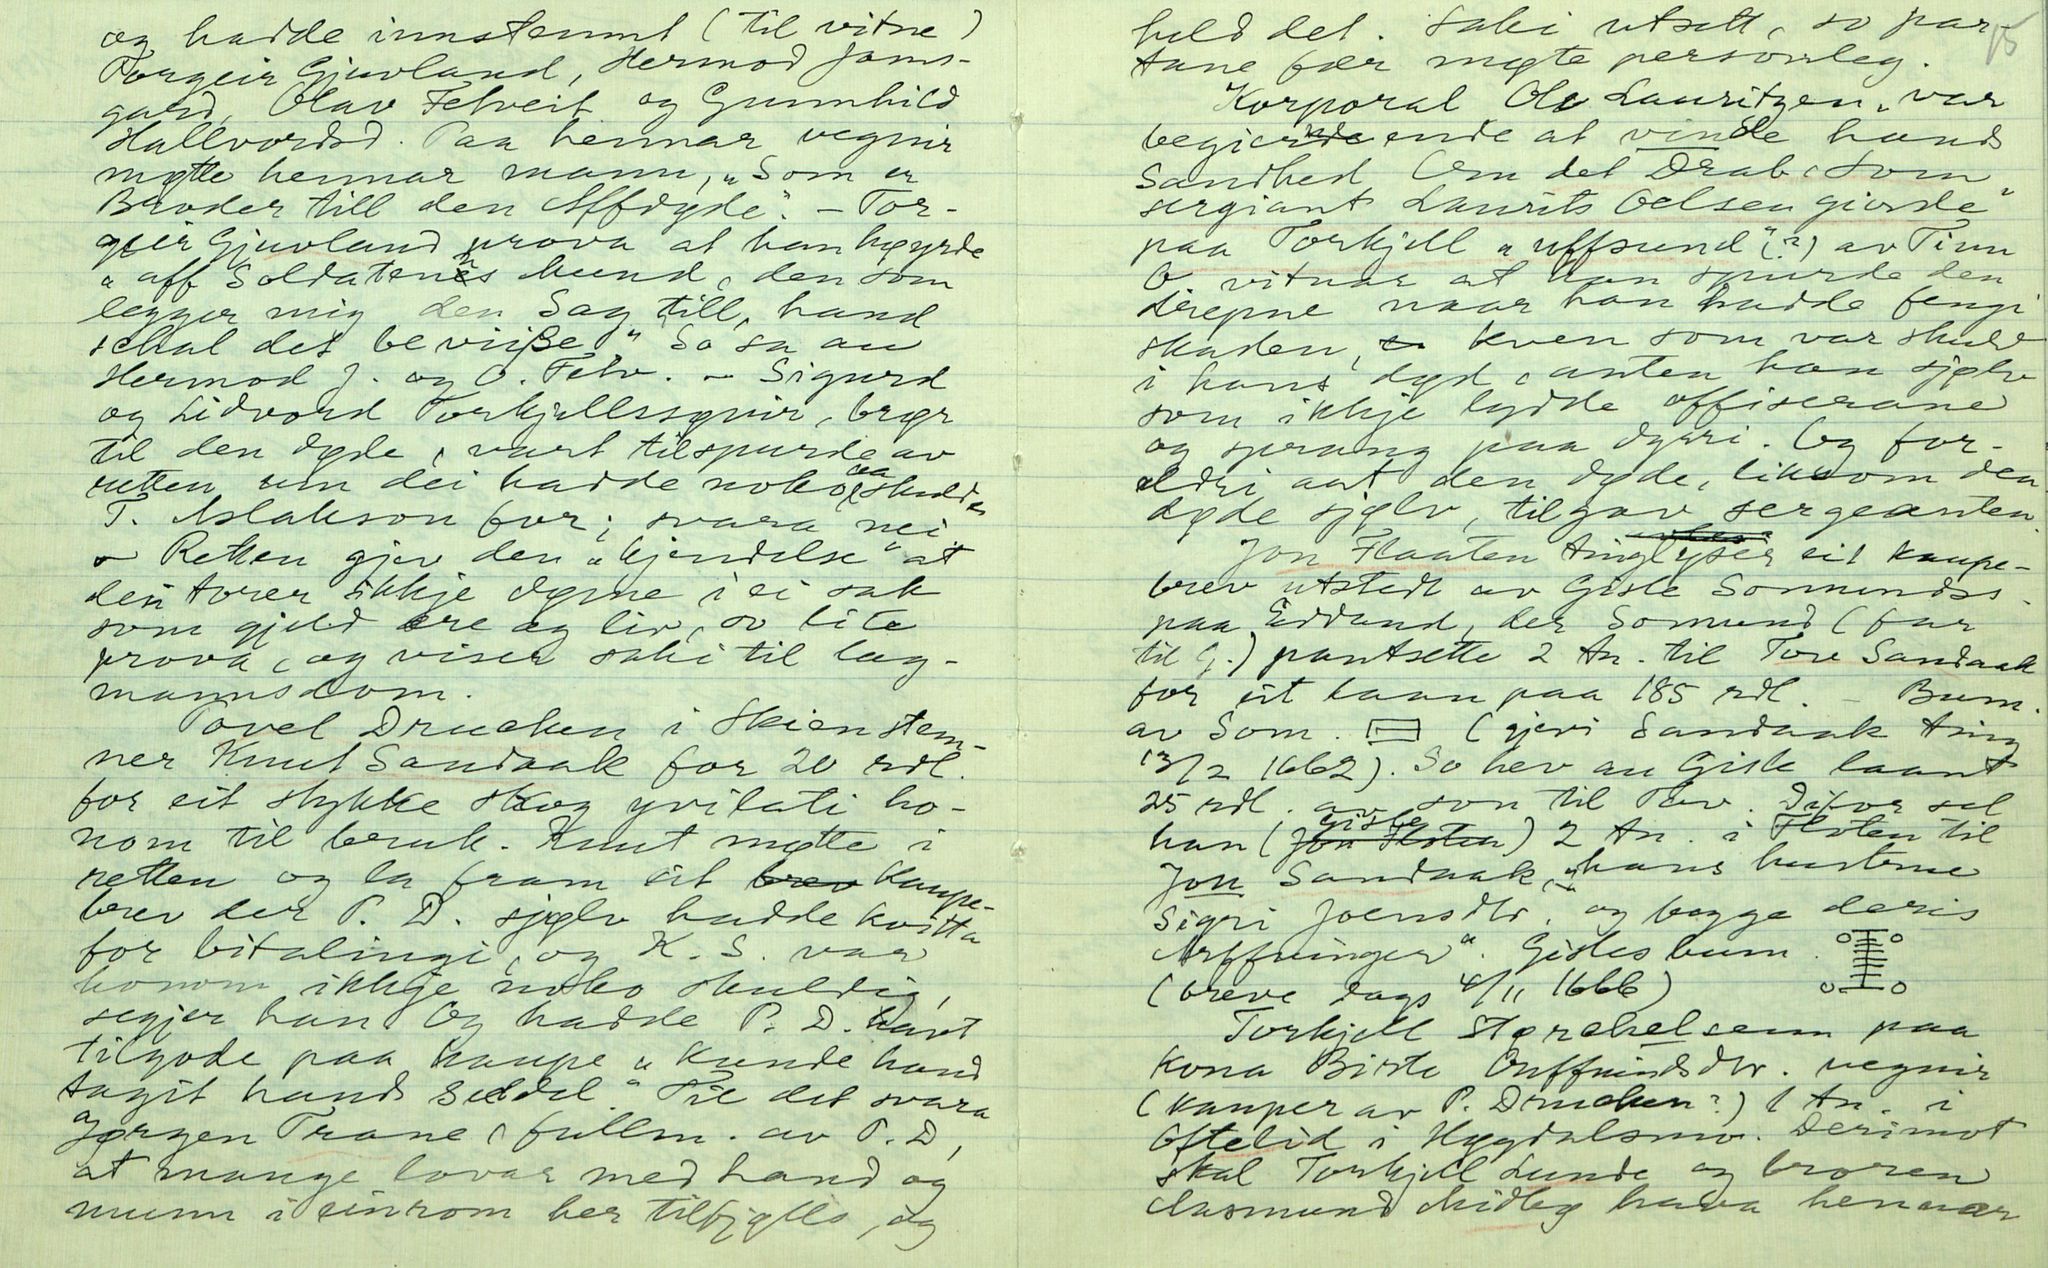 og hadde innstemt (til vitne)
Torgeir Gjuvland, Hermod Jams-
gard, Olav Felveit og Gunnhild
Hallvordsd. Paa hennar vegnir
møtte hennar mann, „Som er
Broder till den Affdyde". – Tor-
geir Gjuvland prova at han høyrde
„aff Soldatens Mund, den som
legger mig den Sag till, hand
schal det beviiße" So sa au
Hermod J. og O. Felv. – Sigurd
og Lidvord Torkjellssynir, brør
til den døde, vart tilspurde av
retten um dei hadde noko aa skulde
T. Aslakson for; svara nei
– Retten gjev den „kjendelse" at
dei torer ikkje døme i ei sak
som gjeld ære og liv, so lite
prova, og viser saki til lag-
mannsdom.
Povel Drucken i Skien stem-
ner Knut Sandaak for 20 rdl.
for eit stykke skog yvilati ho-
nom til bruk. Knut møtte i
retten og la fram eit brev kaupe-
brev der P. D. sjølv hadde kvitta
for bitalingi, og K. S. var
honom ikkje noko skuldig,
segjer han Og hadde P. D. havt
tilgode paa kaupe „kunde hand
tagit hands Seddel." Til det svara
Jørgen Trane, fullm. av P. D,
at mange lovar med hand og
munn i einrom her tilfjells, og
held det. Saki utsett, so par-
tane fær møte personleg.
15
Korporal Ole Lauritzen „var
begierende at vinde hands
Sandhed Om det Drab, som
sergiant Laurits Oelsen giorde"
paa Torkjell „uffsund" (?) av Tinn
O vitnar at han spurde den
drepne naar han hadde fengi
skaden, kven som var skuld
i hans død, anten han sjølv
som ikkje lydde offiserane
og sprang paa dyri. Og for-
eldri aat den døde, liksom den
døde sjølv, tilgav sergeanten.
Jon Flaaten tinglyser eit kaupe-
brev utstedt av Gisle Somundss.
paa Eddund, der Somund (far
til G.) pantsette 2 tn. til Tore Sandaak
for eit laan paa 185 rdl. – Bum.
av Som. (gjevi Sandaak ting
13/2 1662). So hev au Gisle laant
25 rdl. av son til Tov. Difor sel
han (Jon Floten Gisle) 2 tn. i Floten til
Jon Sandaak, „hans hustrue
Sigri Joensdtr. og begge deris
Arffvinger". Gisles bum.
(breve dags 4/11 1666)
Torkjell Størekelsenn paa
kona Birte Ouffuindsdtr. vegnir
(kauper av P. Drucken?) 1 tn. i
Oftelid i Høydalsmo. Derimot
skal Torkjell Lunde og broren
Aasmund Midbø hava hennar